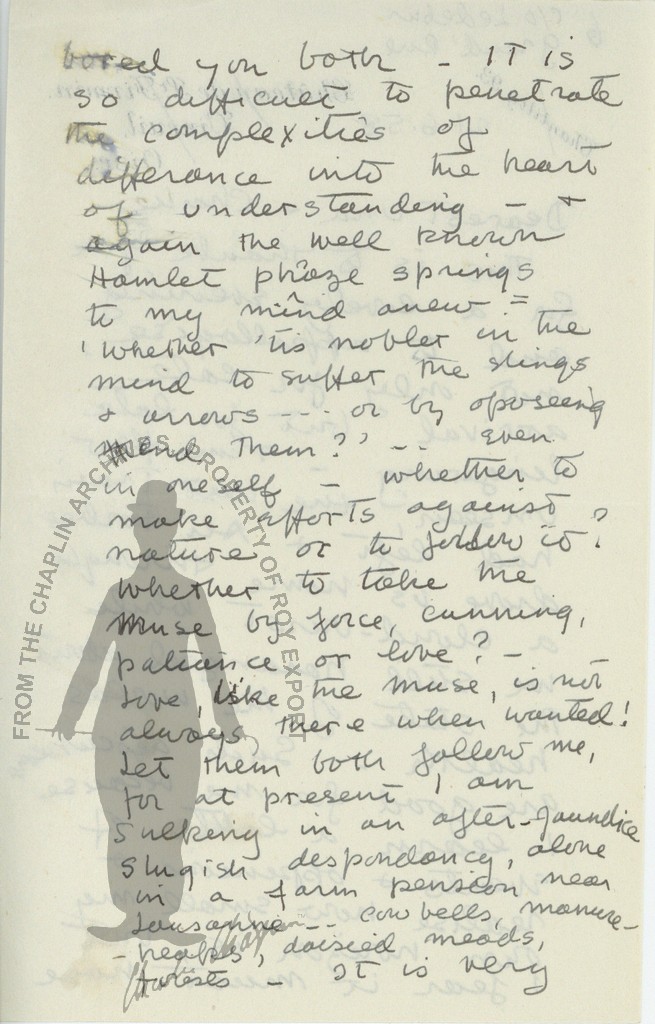 bored you both - IT is
so difficult to penetrate
the complexities of
differance into the heart
of understanding - +
again the well known
Hamlet phraze springs
to my mind anew =
'whether 'tis nobler in the
mind to suffer the slings
+ arrows --- or by oposeing
end them?' -- even
in oneself - whether to
make efforts against
nature or to follow it?
whether to take the
Muse by force, cunning,
patiance or love? -
Love, like the muse, is not
always there when wanted!
Let them both follow me,
for at present I am
Sulking in an after-jaundice
slugish despondancy, alone
in a farm pension near
Lausanne -- cowbells, manure-
-heaps, daisied meads,
forests - It is very
FROM THE CHAPLIN ARCHIVES, PROPERTY OF ROY EXPORT